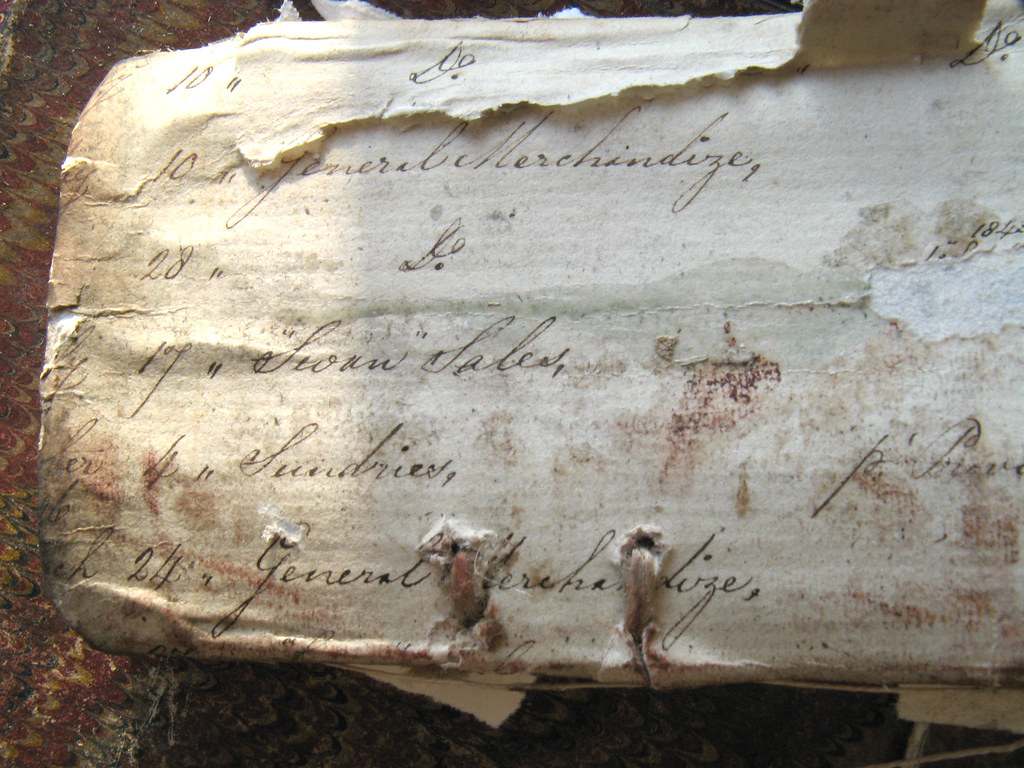 10 " Do. Do.
10 " General Merchandize,
28 " Do.
184
17 " "Swan" Sales,
4 " Sundries, p
24 " General Merchandize,